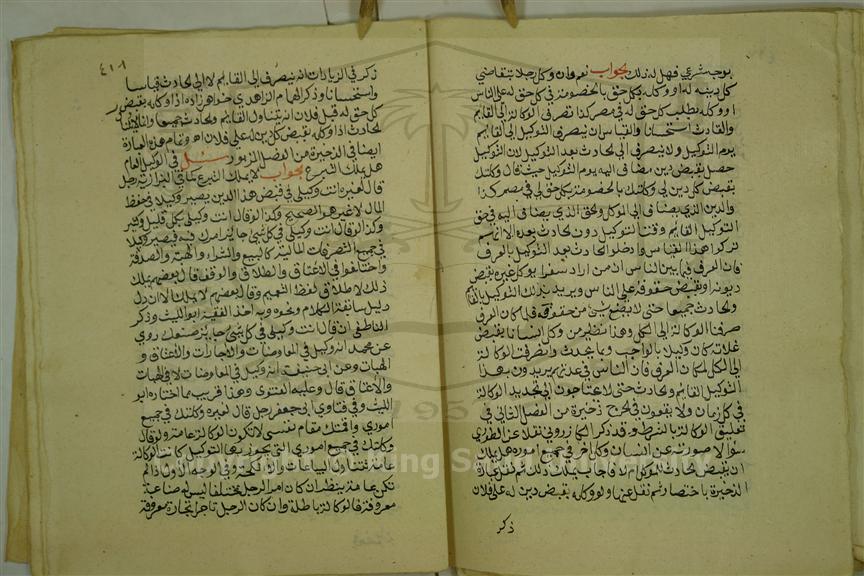 بوجه شرعي فهل له ذلك الجواب نعم وان وكل رجلا بتقاضي
كل دينه له او وكله بكل حق له بالخصومة في كل حق له على الناس
او وكله بطلب كل حق له في مصر كذا تصرف الوكالة الى القايم
والحادث استحسانا والقياس ان ينصرف التوكيل الى القايم
يوم التوكيل ولا ينصرف الى الحادث بعد التوكيل لان التوكيل
حصل بقبض دين مضاف اليه يوم التوكيل حيث قال وكلتك
بقبض كل دين لي وكلتك بالخصومة بكل حق لي في مصر كذا
والدين الذي يضاف الى الموكل والحق الذي يضاف اليه في حق
التوكيل القايم وقت التوكيل دون الحادث بعده الا انهم
تركوا هذا القياس وادخلوا الحادث بعد التوكيل بالعرف
فان العرف فيما بين الناس ان من اراد سفرا يوكل غيره بقبض
ديونه او بقبض حقوقه على الناس ويريد بذلك التوكيل القايم
والحادث جميعا حتى لا يضيع شئ من حقوقه فلمكان العرف
صرفنا الوكالة الى الكل وهذا نظير من وكل انسانا بقبض
غلاته كان وكيلا بالواجب وبما يحدث وانصرفت الوكالة
الى الكل لمكان العرف فان الناس في عادتهم يريدون بهذا
التوكيل القايم والحادث حتى لا يحتاجون الى تجديد الوكالة
في كل زمان ولا يقعون في الحرج ذخيرة من الفصل الثاني في
تعليق الوكالة بالشرط وقد ذكر الكازروني نقلا عن الطوري
سؤالا صورته عن انسان وكل اخر في جميع اموره هل يملك
ان يقبض الحادث للموكل ام لا فاجاب يملك ذلك ثم نقل عبارة
الذخيرة باختصار ثم نقل عنها ولو وكله بقبض دين له على فلان
ذكر
٤١٨
ذكر في الزيادات انه ينصرف الى القايم لا الى الحادث قياسا
واستحسانا وذكر الامام الزاهدي خواهر زاده اذا وكله بقبض
كل حق له قبل فلان انه يتناول القايم والحادث جميعا وانما لا يتناول
الحادث اذا وكله بقبض كل دين له على فلان اه وتمام هذه العبارة
ايضا في الذخيرة من الفصل المزبور سئل في الوكيل العام
هل يملك التبرع الجواب لا يملك التبرع كما في البزازية رجل
قال لغيره انت وكيلي في قبض هذا الدين يصير وكيلا في حفظ
المال لا غير هو الصحيح وكذا لو قال انت وكيلي بكل قليل وكثير
وكذا لو قال انت وكيلي في كل شئ جايز امرك فيه فيصير وكيلا
في جميع التصرفات المالية كالبيع والشراء والهبة والصدقة
واختلفوا في الاعتاق والطلاق والوقف قال بعضهم يملك
ذلك لاطلاق لفظ التعميم وقال بعضهم لا يملك الا ان دل
دليل سابقة الكلام ونحوه وبه اخذ الفقيه ابو الليث وذكر
الناطفي ان قال انت وكيلي في كل شئ جايز صنعك روي
عن محمد انه وكيل في المعاوضات والاجارات والاعتاق و
الهبات وعن ابي حنيفة انه وكيل في المعاوضات لا في الهبات
والاعتاق قال وعليه الفتوى وهذا قريب مما اختاره ابو
الليث وفي فتاوي ابي جعفر رجل قال لغيره وكلتك في جميع
اموري واقمتك مقام نفسي لا تكون الوكالة عامة ولو قال
وكلتك في جميع اموري التي يجوز بها التوكيل كانت الوكالة
عامة تتناول البياعات والانكحة وفي الوجه الاول اذا لم
تكن عامة ينظر ان كان امر الرجل مختلفا ليس له صناعة
معروفة فالوكالة باطلة وان كان الرجل تاجرا تجارة معروفة